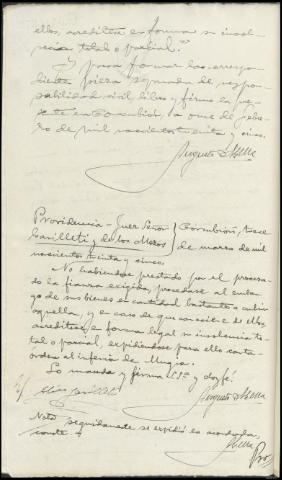 ellos, acredítese en forma su insol-
vencia total o parcial."
Y para formar la correspon-
diente pieza separada de respon-
sabilidad civil, libro y firmo la pre-
sente en Corcubión, a once de febre-
ro de mil novecientos treinta y cinco.
Augusto
Providencia - Juez Señor
Carilleti y de los Mozos
Corcubión, trece
de marzo de mil
novecientos treinta y cinco.
No habiéndose prestado por el procesa-
do la fianza exigida, procédase al embar-
go de sus bienes en cantidad bastante a cubrir
aquella, y en caso de que carezca de ellos,
acredítese en forma legal su insolvencia to-
tal o parcial, expidiéndose para ello carta-
orden al inferior de Mugía.
Lo manda y firma S.Sª. doy fé.
Augusto
Nota Seguidamente se expidió la acordada,
conste